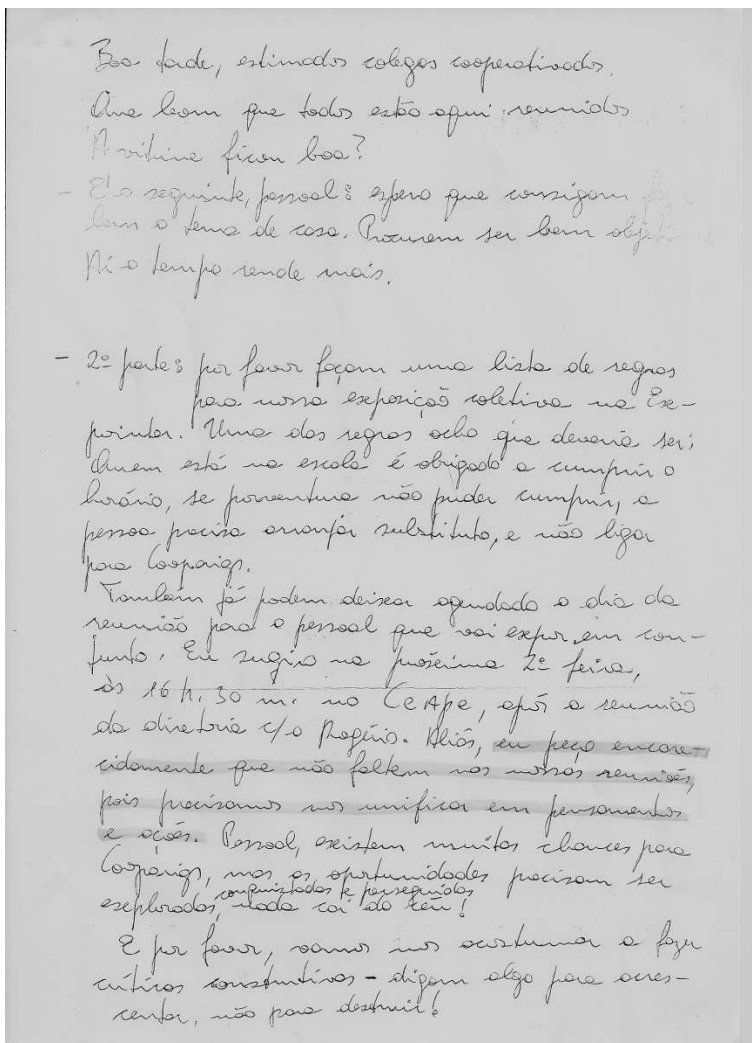 Boa tarde, estimados colegas cooperativados.
Que bom que todos estão aqui reunidos
A vitrine ficou boa?
- É o seguinte, pessoal: espero que consigam fazer
bem o tema de casa. Procurem ser bem objetivos
Aí o tempo rende mais.
- 2ª parte: por favor façam uma lista de regras
para nossa exposição coletiva na Ex-
printer. Uma das regras acho que deveria ser:
Quem está na escala é obrigado a cumprir o
horário, se porventura não puder cumprir, a
pessoa precisa arranjar substituto, e não ligar
para Cooparigs.
Também já podem deixar agendado o dia da
reunião para o pessoal que vai expor em con-
junto. Eu sugiro na próxima 2ª feira,
às 16 h. 30 m. no CEAPE, após a reunião
da diretoria c/o Rogério. Aliás, eu peço encare-
cidamente que não faltem nas nossas reuniões,
pois precisamos nos unificar em pensamentos
e ações. Pessoal, existem muitas chances para
Cooparigs, mas as oportunidades precisam ser
conquistadas e perseguidas
exploradas, nada cai do céu!
E por favor, vamos nos acostumar a fazer
críticas construtivas - digam algo para acres-
centar, não para destruir!